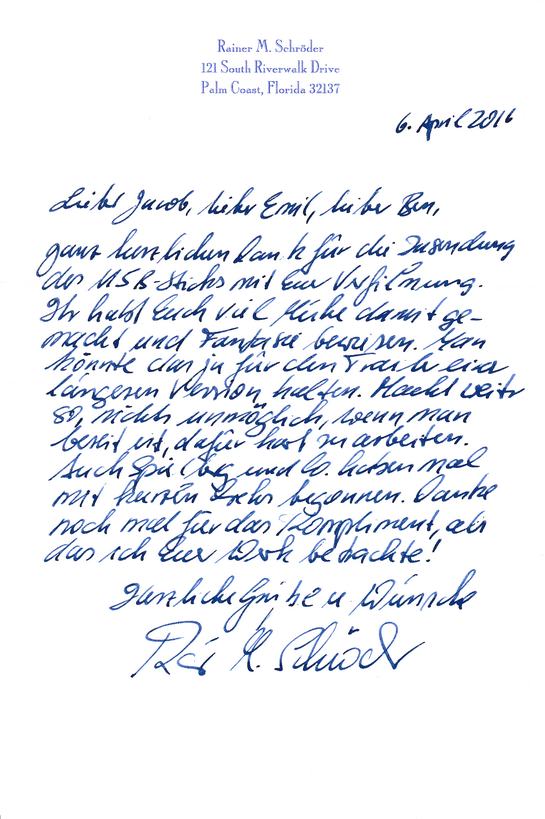 Rainer M. Schröder
121 South Riverwalk Drive
Palm Coast, Florida 32137
6. April 2016
Lieber Jacob, lieber Emil, lieber Ben,
ganz herzlichen Dank für die Zusendung
des USB-Sticks mit Eurer Verfilmung.
Ihr habt Euch viel Mühe damit ge-
macht und Fantasie bewiesen. Man
könnte das ja für den Trailer einer
längeren Version halten. Macht weiter
so, nichts unmöglich, wenn man
bereit ist, dafür hart zu arbeiten.
Auch Spielberg und Co. haben mal
mit kurzen begonnen. Danke
noch mal für das Kompliment, als
das ich Euer Werk betrachte!
Herzliche Grüße u. Wünsche
Rainer M. Schröder